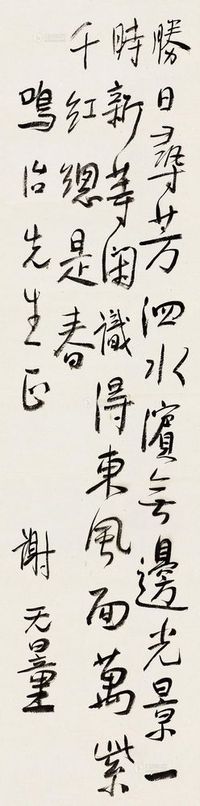 勝日尋芳泗水濱無邊光景一
時新等閑識得東風面萬紫
千紅總是春
鳴治先生正
謝无量